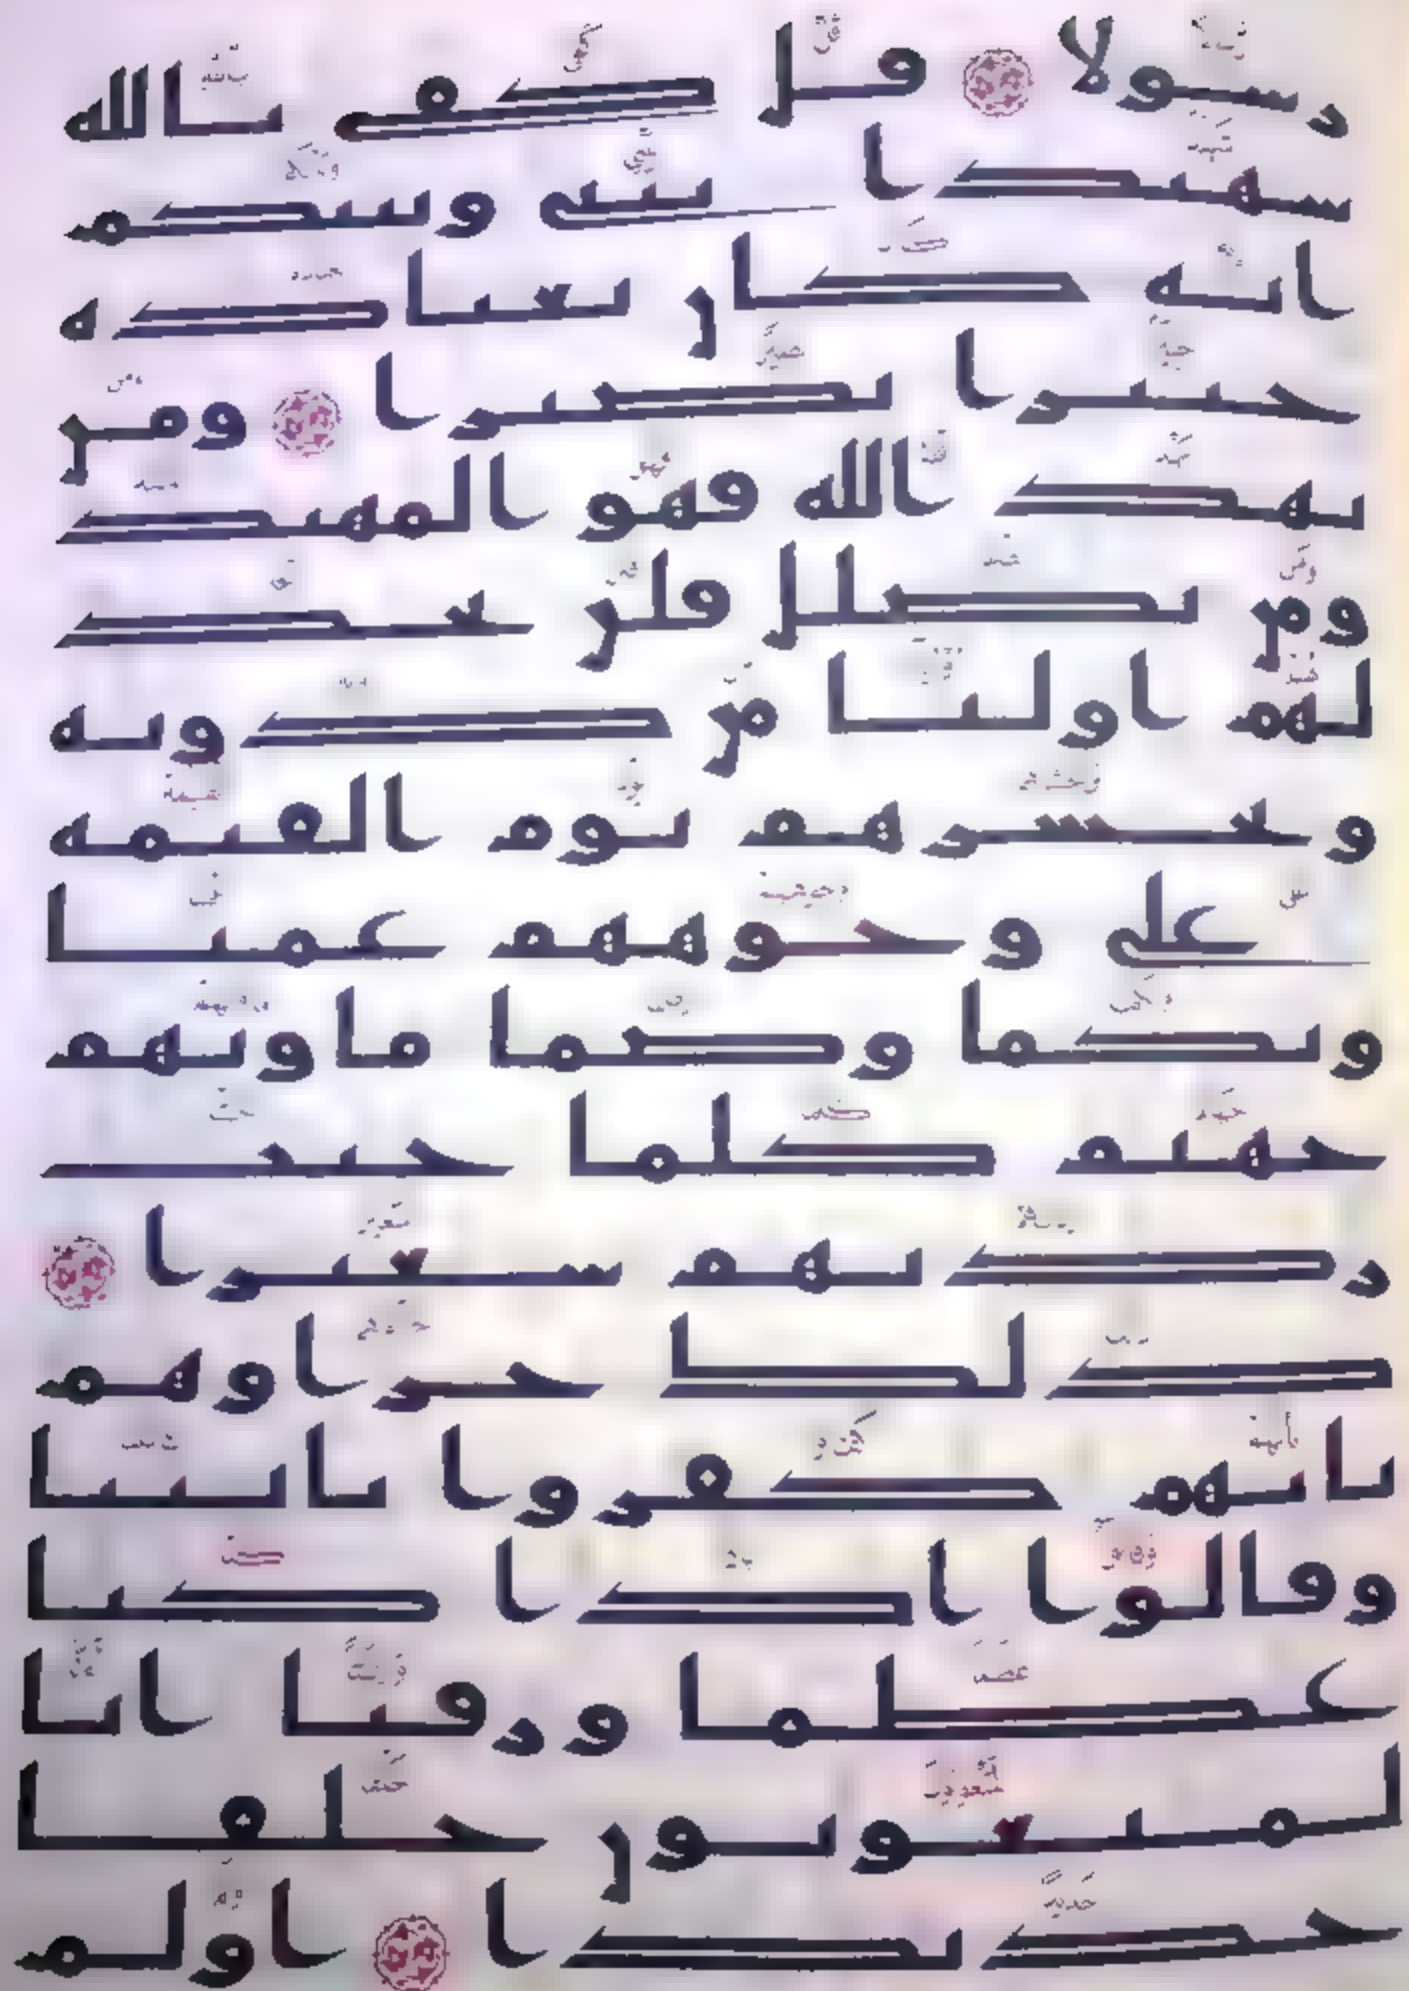 رسولا ۝ قل كفى بالله
شهيدا بيني وبينكم
انه كان بعباده
خبيرا بصيرا ۝ ومن
يهد الله فهو المهتد
ومن يضلل فلن تجد
لهم اوليا من دونه
ونحشرهم يوم القيمه
على وجوههم عميا
وبكما وصما ماويهم
جهنم كلما خبت
زدنهم سعيرا ۝
ذلك جزاوهم
بانهم كفروا بايتنا
وقالوا اذا كنا
عظما ورفتا انا
لمبعوثون خلقا
جديدا ۝ اولم